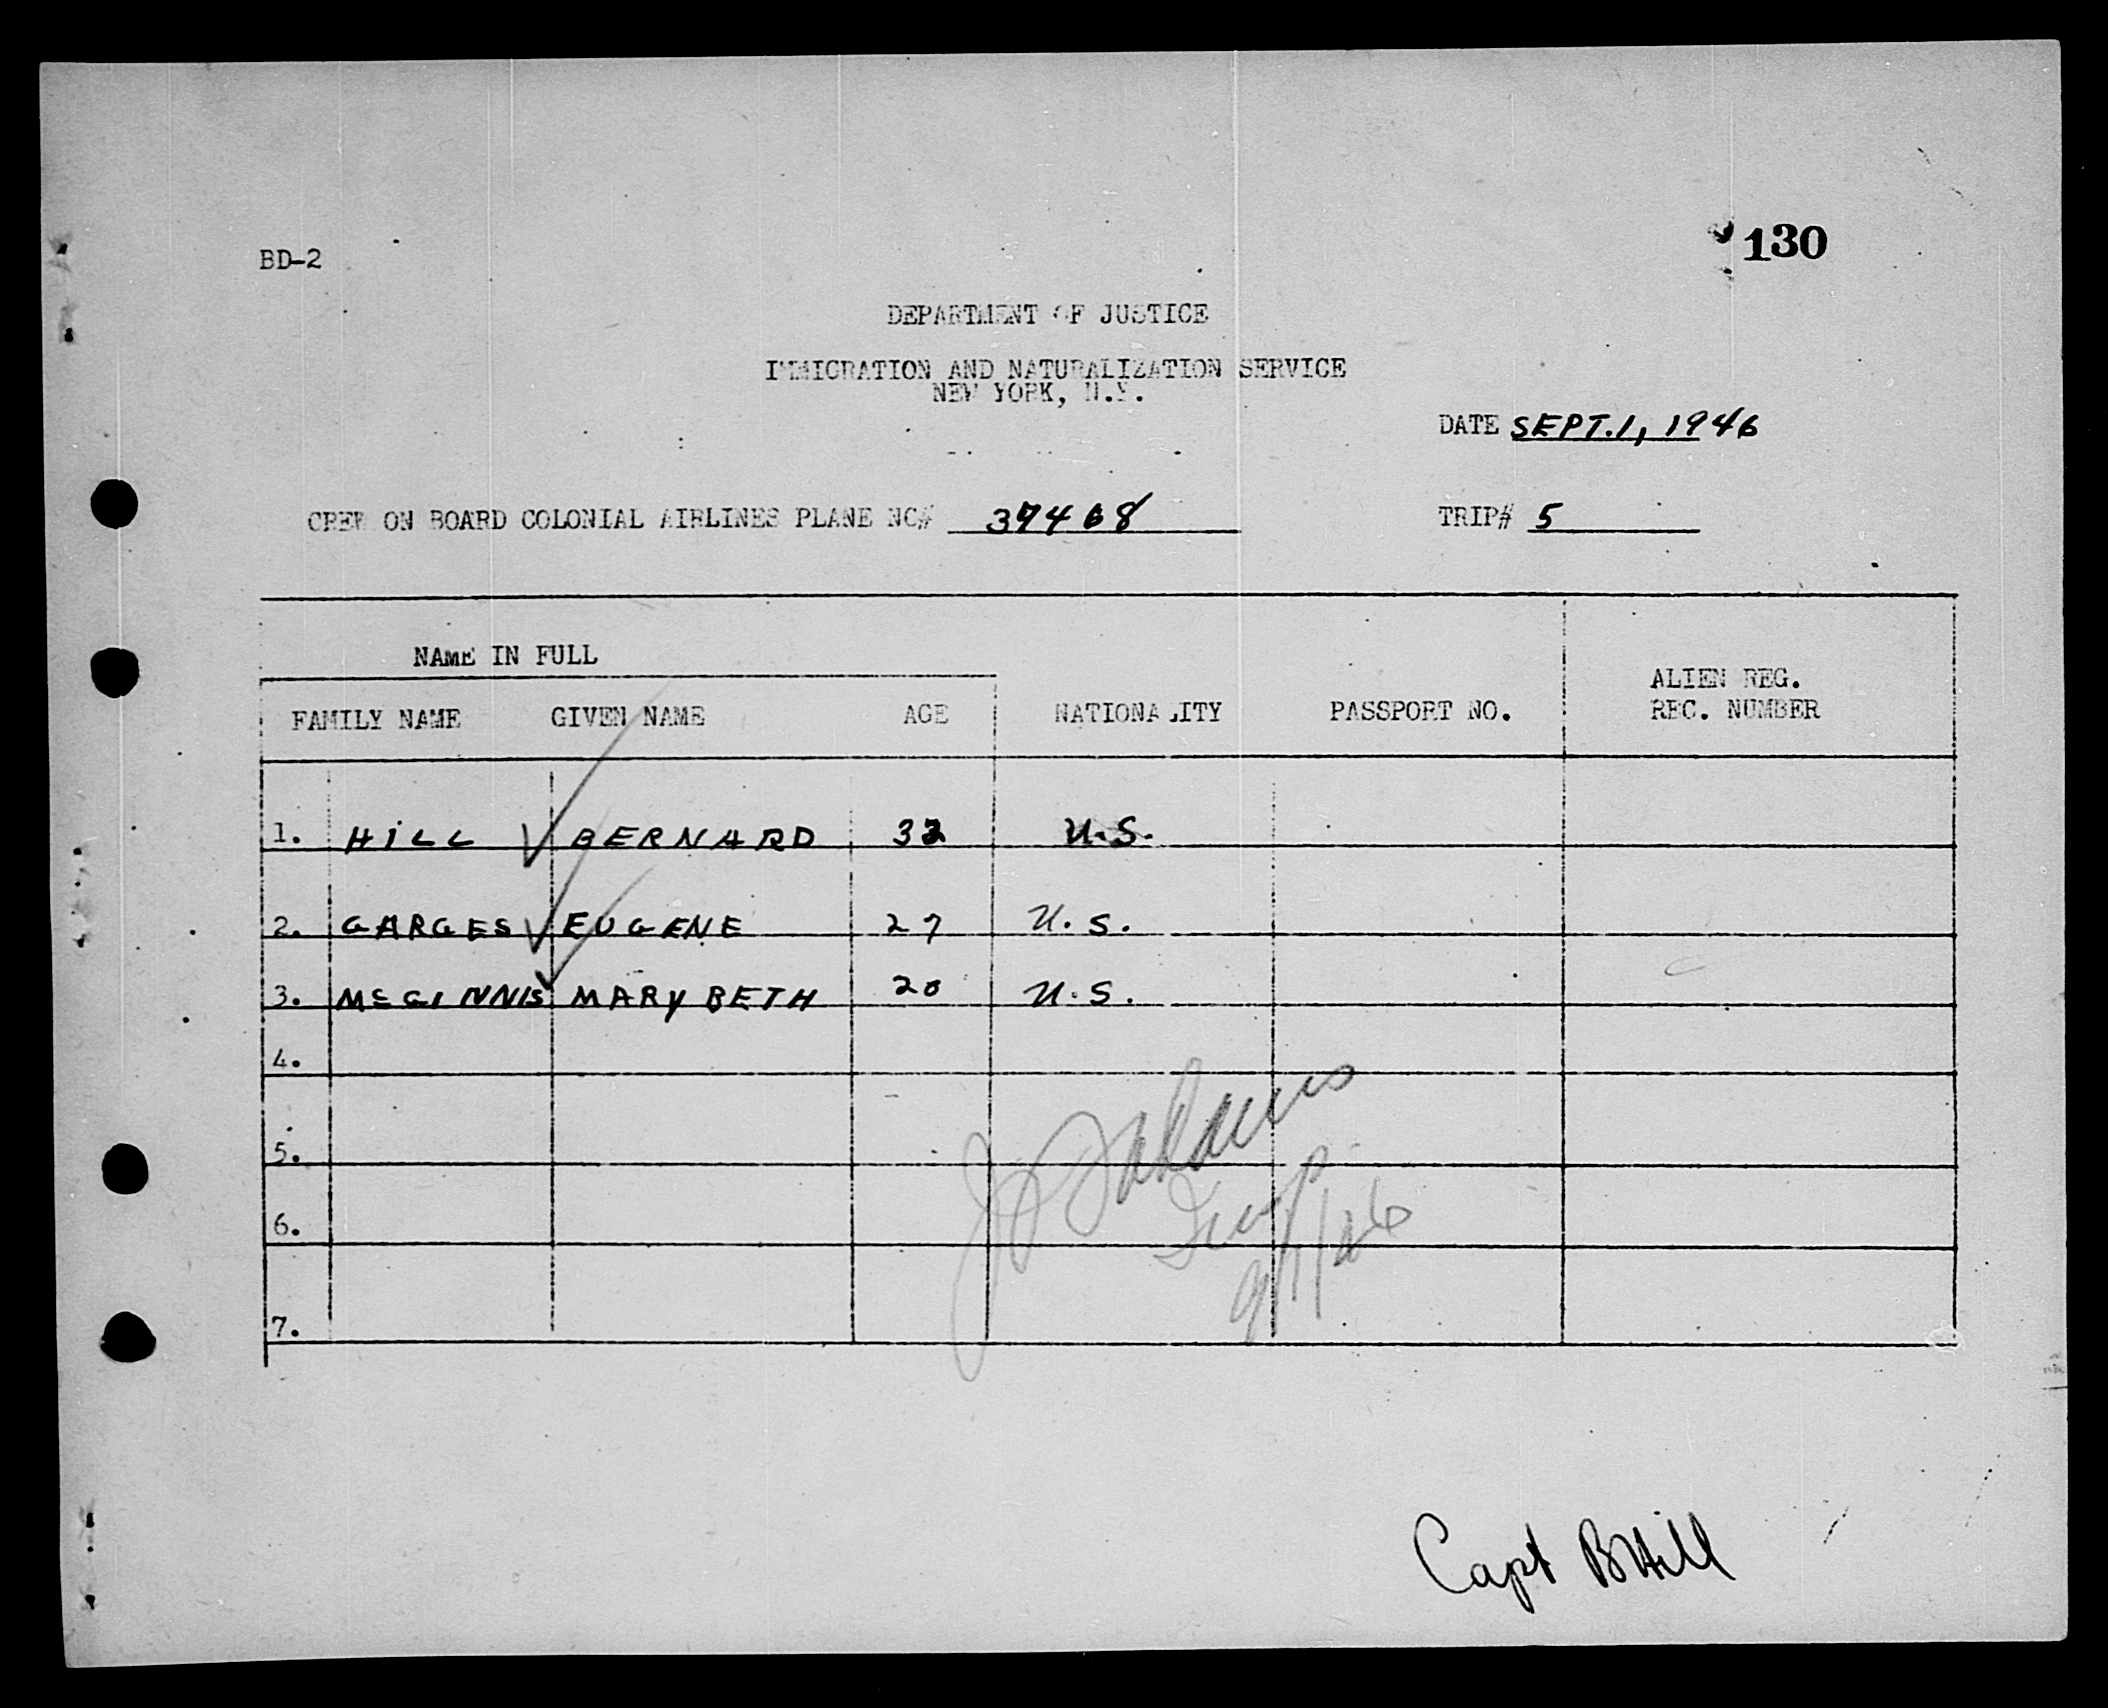 130
BD-2
DEPARTMENT OF JUSTICE
IMMIGRATION AND NATURALIZATION SERVICE
NEW YORK, N.Y.
DATE SEPT. 1, 1946
CREW ON BOARD COLONIAL AIRLINES PLANE NC# 37468
TRIP# 5
NAME IN FULL
FAMILY NAME GIVEN NAME AGE NATIONALITY PASSPORT NO. ALIEN REG. REC. NUMBER
1. HILL BERNARD 32 U.S.
2. GARGES EUGENE 27 U.S.
3. MCGINNIS MARY BETH 20 U.S.
4.
5.
6.
7.
9/1/46
Capt BHill